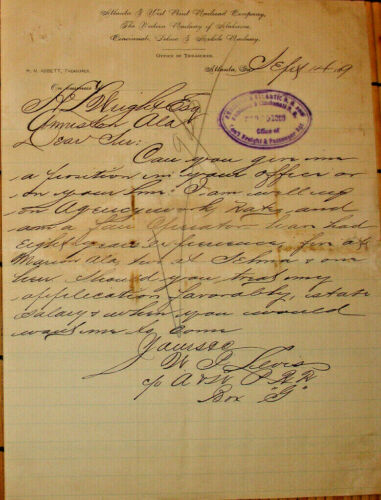 Atlanta & West Point Railroad Company,
The Western Railway of Alabama,
Cincinnati, Selma & Mobile Railway.
OFFICE OF TREASURER
TREASURER.
Atlanta, Ga. Sept 14 89
On business
Wright Esq
Anniston Ala
Dear Sir:
Can you give me
a position in your office or
on your line. I am well up
on Agency work, Rates, and
am a fair Operator have had
Eight years Experience
Marion Ala, at Selma & on
line. Should you treat my
application favorably, state
Salary & when you would
want me to come
Yours &c
Lewis
c/o A & W P R R
Box "G"
ATLANTIC R. R.
Office of
Gen'l Freight & Passenger Agt.